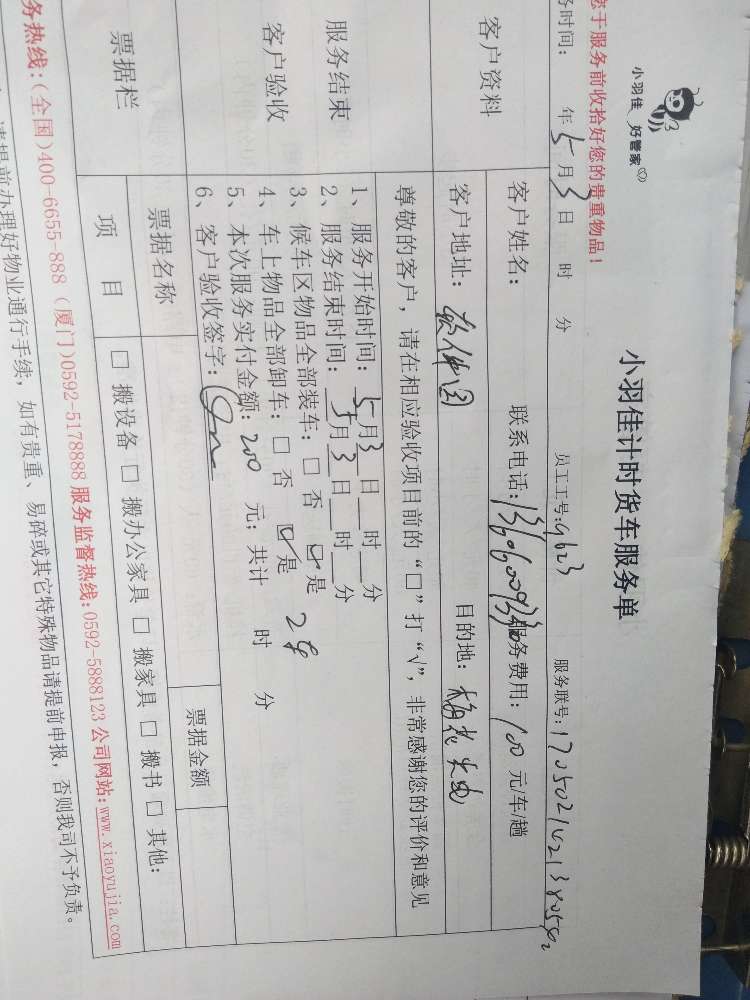 小羽佳 好管家
小羽佳计时货车服务单
您于服务前收拾好您的贵重物品！
务时间： 年5月3日 时 分 员工工号：9623 服务联号：
客户资料
客户姓名： 联系电话： 服务费用：100 元/车/趟
客户地址：软件园 目的地：
尊敬的客户，请在相应验收项目前的“□”打“√”，非常感谢您的评价和意见
服务结束
客户验收
1、服务开始时间：5月3日__时__分
2、服务结束时间：5月3日__时__分
3、候车区物品全部装车：□ 否 ☑ 是
4、车上物品全部卸车：□ 否 ☑ 是 2车
5、本次服务实付金额：200 元；共计 时 分
6、客户验收签字：
票据栏
票据名称 票据金额
项 目 □ 搬设备 □ 搬办公家具 □ 搬家具 □ 搬书 □ 其他：
务热线：(全国)400-6655-888 (厦门)0592-5178888 服务监督热线：0592-5888123 公司网站：www.xiaoyujia.com
请提前办理好物业通行手续，如有贵重、易碎或其它特殊物品请提前申报，否则我司不予负责。